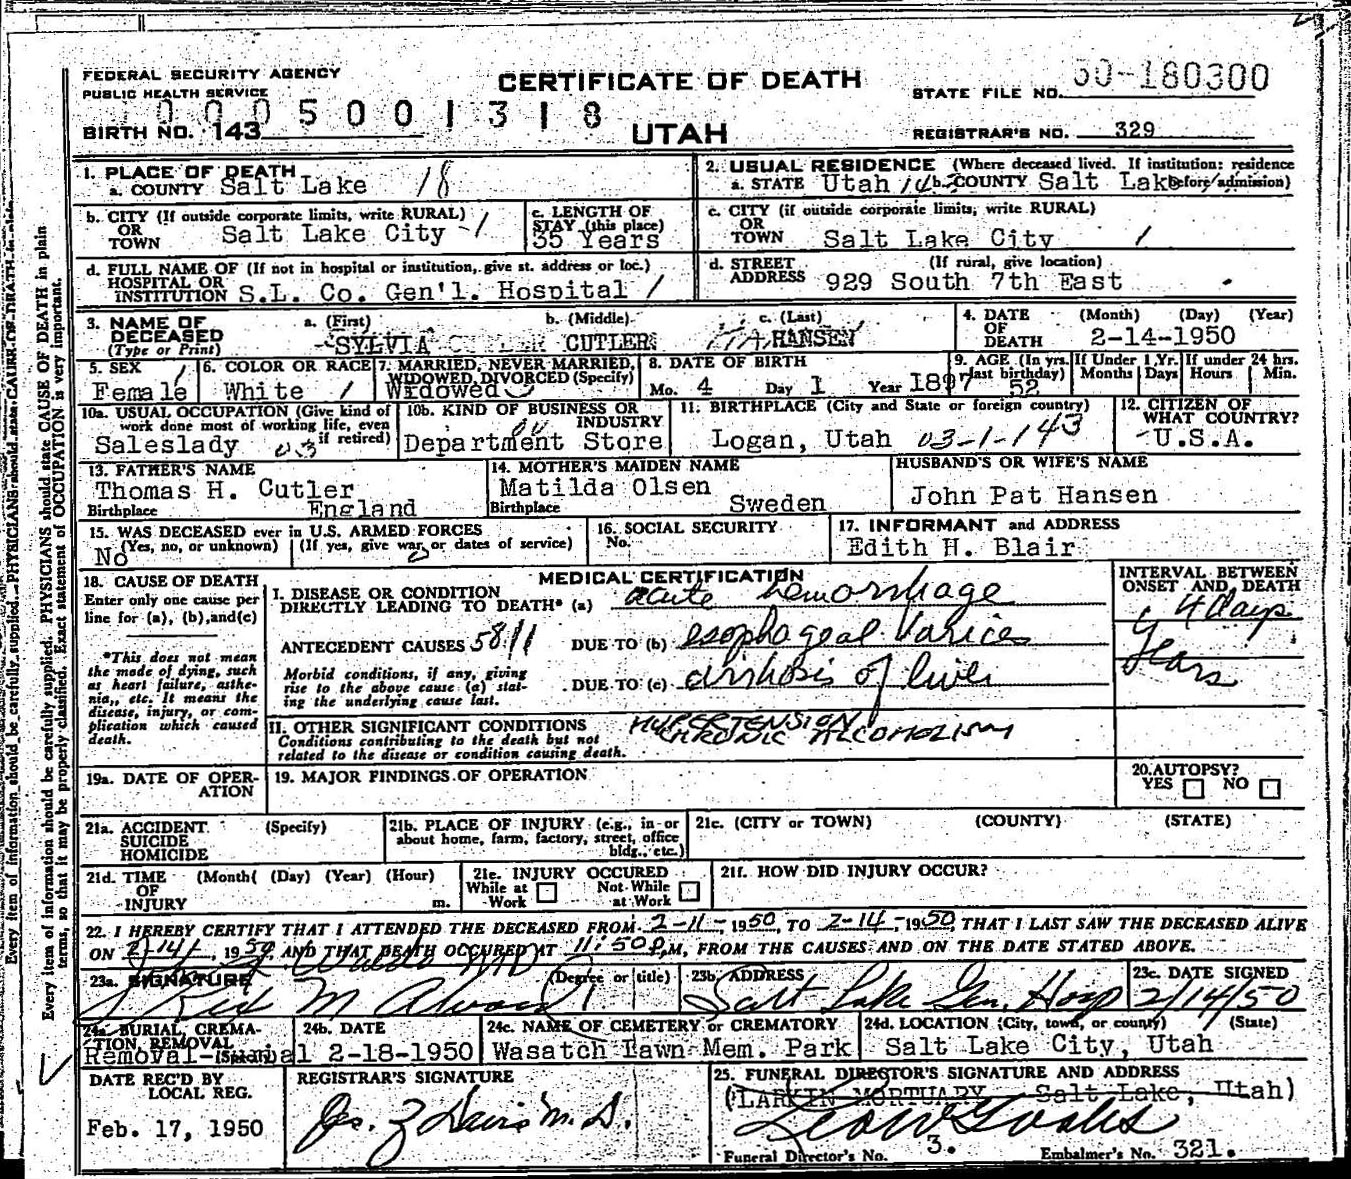 FEDERAL SECURITY AGENCY
PUBLIC HEALTH SERVICE
CERTIFICATE OF DEATH
UTAH
STATE FILE NO. 50-180300
0005001318
BIRTH NO. 143
REGISTRAR'S NO. 329
1. PLACE OF DEATH
a. COUNTY Salt Lake 18
2. USUAL RESIDENCE (Where deceased lived. If institution: residence before admission)
a. STATE Utah 143 b. COUNTY Salt Lake
b. CITY (If outside corporate limits, write RURAL)
OR
TOWN Salt Lake City -1
c. LENGTH OF
STAY (this place)
35 Years
c. CITY (if outside corporate limits, write RURAL)
OR
TOWN Salt Lake City 1
d. FULL NAME OF (If not in hospital or institution, give st. address or loc.)
HOSPITAL OR
INSTITUTION S.L. Co. Gen'l. Hospital 1
d. STREET (If rural, give location)
ADDRESS 929 South 7th East
3. NAME OF
DECEASED
(Type or Print)
a. (First) b. (Middle) c. (Last)
SYLVIA CUTLER HANSEN
4. DATE (Month) (Day) (Year)
OF
DEATH 2-14-1950
5. SEX 1
Female
6. COLOR OR RACE
White 1
7. MARRIED, NEVER MARRIED,
WIDOWED, DIVORCED (Specify)
Widowed
8. DATE OF BIRTH
Mo. 4 Day 1 Year 1897
9. AGE (In yrs. last birthday)
52
If Under 1 Yr.
Months Days
If under 24 hrs.
Hours Min.
10a. USUAL OCCUPATION (Give kind of
work done most of working life, even
if retired)
Saleslady 03
10b. KIND OF BUSINESS OR
INDUSTRY
Department Store
11. BIRTHPLACE (City and State or foreign country)
Logan, Utah 03-1-143
12. CITIZEN OF
WHAT COUNTRY?
U.S.A.
13. FATHER'S NAME
Thomas H. Cutler
Birthplace England
14. MOTHER'S MAIDEN NAME
Matilda Olsen
Birthplace Sweden
HUSBAND'S OR WIFE'S NAME
John Pat Hansen
15. WAS DECEASED ever in U.S. ARMED FORCES
(Yes, no, or unknown) (If yes, give war or dates of service)
No
16. SOCIAL SECURITY
No.
17. INFORMANT and ADDRESS
Edith H. Blair
18. CAUSE OF DEATH
Enter only one cause per
line for (a), (b), and (c)
*This does not mean
the mode of dying, such
as heart failure, asthe-
nia, etc. It means the
disease, injury, or com-
plication which caused
death.
MEDICAL CERTIFICATION
I. DISEASE OR CONDITION
DIRECTLY LEADING TO DEATH* (a) acute hemorrhage
ANTECEDENT CAUSES 5811 DUE TO (b) esophageal varices
Morbid conditions, if any, giving
rise to the above cause (a) stat-
ing the underlying cause last.
DUE TO (c) cirrhosis of liver
II. OTHER SIGNIFICANT CONDITIONS
Conditions contributing to the death but not
related to the disease or condition causing death.
HYPERTENSION
CHRONIC ALCOHOLISM
INTERVAL BETWEEN
ONSET AND DEATH
4 days
years
19a. DATE OF OPER-
ATION
19. MAJOR FINDINGS OF OPERATION
20. AUTOPSY?
YES NO
21a. ACCIDENT (Specify)
SUICIDE
HOMICIDE
21b. PLACE OF INJURY (e.g., in or
about home, farm, factory, street, office
bldg., etc.)
21c. (CITY or TOWN) (COUNTY) (STATE)
21d. TIME (Month( (Day) (Year) (Hour)
OF
INJURY m.
21e. INJURY OCCURED
While at Work
Not While at Work
21f. HOW DID INJURY OCCUR?
22. I HEREBY CERTIFY THAT I ATTENDED THE DECEASED FROM 2-11-, 1950, TO 2-14-, 1950, THAT I LAST SAW THE DECEASED ALIVE
ON 2/14/, 1950, AND THAT DEATH OCCURED AT 11:50 P.M, FROM THE CAUSES AND ON THE DATE STATED ABOVE.
23a. SIGNATURE (Degree or title)
Rex M
23b. ADDRESS
Salt Lake Gen. Hosp
23c. DATE SIGNED
2/14/50
24a. BURIAL, CREMA-
TION, REMOVAL
(Specify)
Removal-
24b. DATE
2-18-1950
24c. NAME OF CEMETERY or CREMATORY
Wasatch Lawn Mem. Park
24d. LOCATION (City, town, or county) (State)
Salt Lake City, Utah
DATE REC'D BY
LOCAL REG.
Feb. 17, 1950
REGISTRAR'S SIGNATURE
Jos. Z Davis M.D.
25. FUNERAL DIRECTOR'S SIGNATURE AND ADDRESS
(LARKIN MORTUARY Salt Lake, Utah)
Funeral Director's No. 3.
Embalmer's No. 321.
Every item of information should be carefully supplied. PHYSICIANS should state CAUSE OF DEATH in plain
terms, so that it may be properly classified. Exact statement of OCCUPATION is very important.
Every item of information should be carefully supplied. PHYSICIANS should state CAUSE OF DEATH in plain